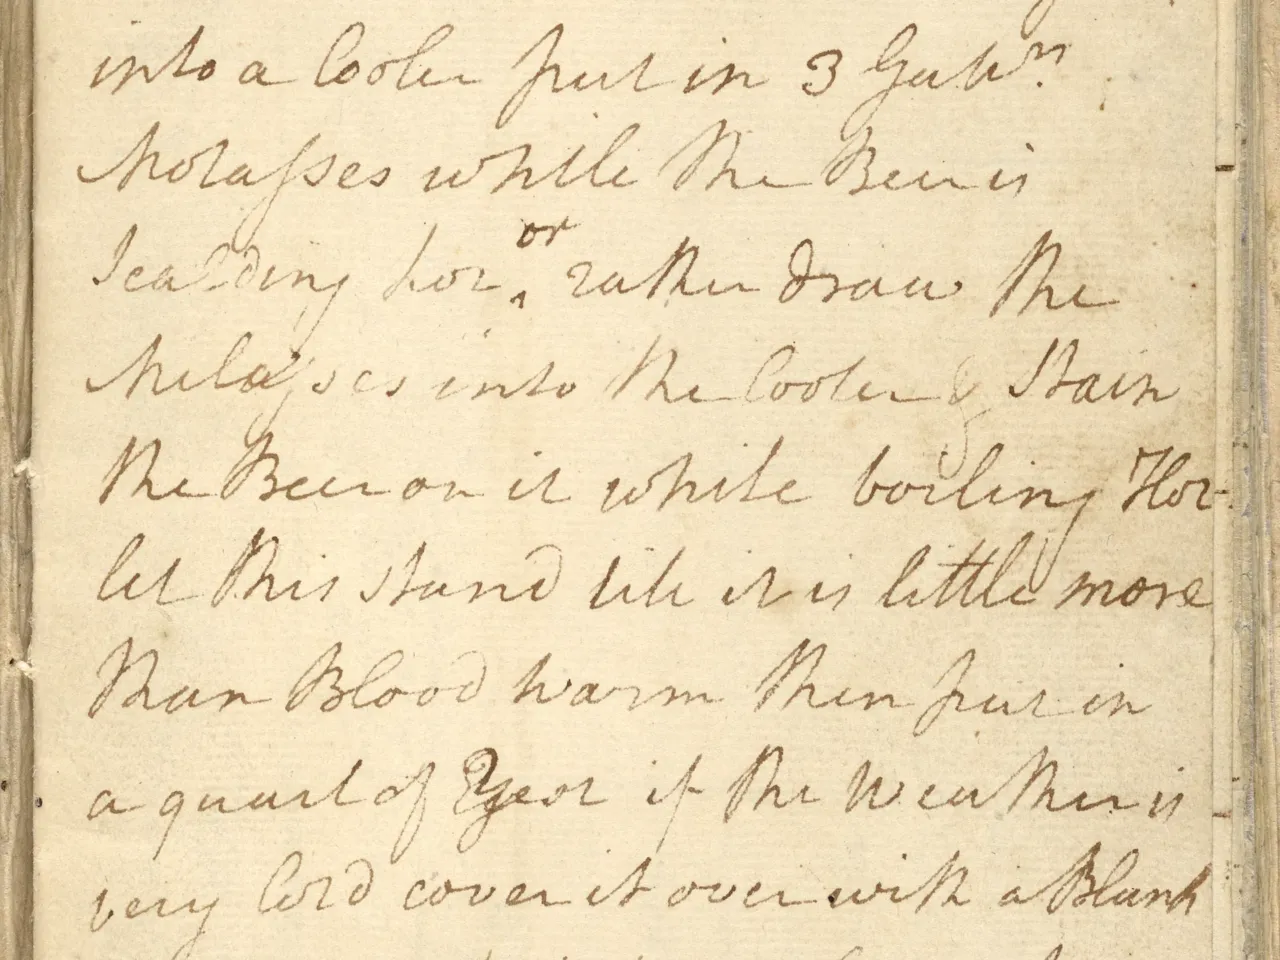 into a Cooler put in 3 Gallⁿ
Molasses while the Beer is
Scalding hot or rather draw the
Melasses into the Cooler & Strain
the Beer on it while boiling Hot
let this stand till it is little more
than Blood warm then put in
a quart of Yeast if the Weather is
very Cold cover it over with a Blank